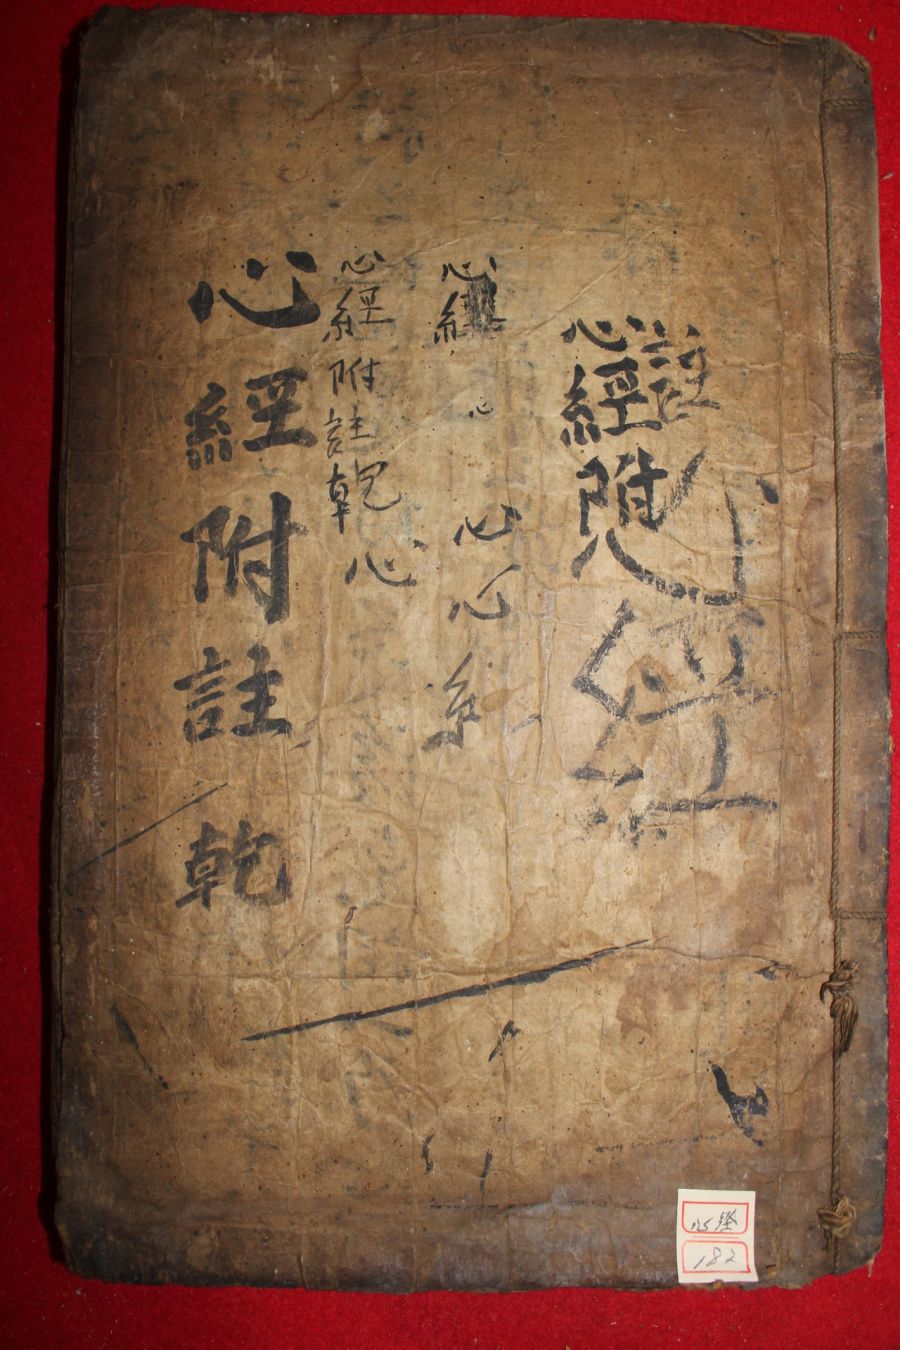 註
心經附
心經
心經
心
心心糸
心經附註乾
心
心經附註乾
心経
182